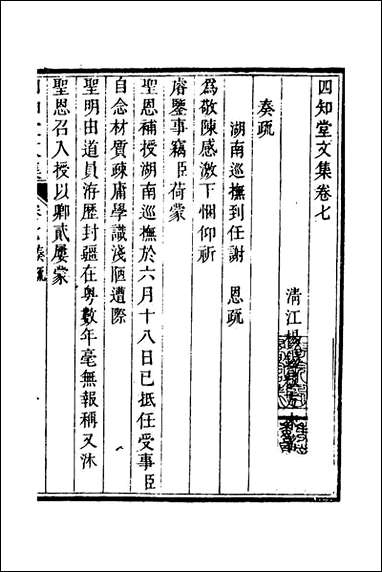 四知堂文集卷七
清江楊
奏疏
湖南巡撫到任謝 恩疏
爲敬陳感激下悃仰祈
睿鑒事竊臣荷蒙
聖恩補授湖南巡撫於六月十八日已抵任受事臣
自念材質疎庸學識淺陋遭際
聖明由道員洊歷封疆在粵數年毫無報稱又沐
聖恩召入授以卿貳屢蒙